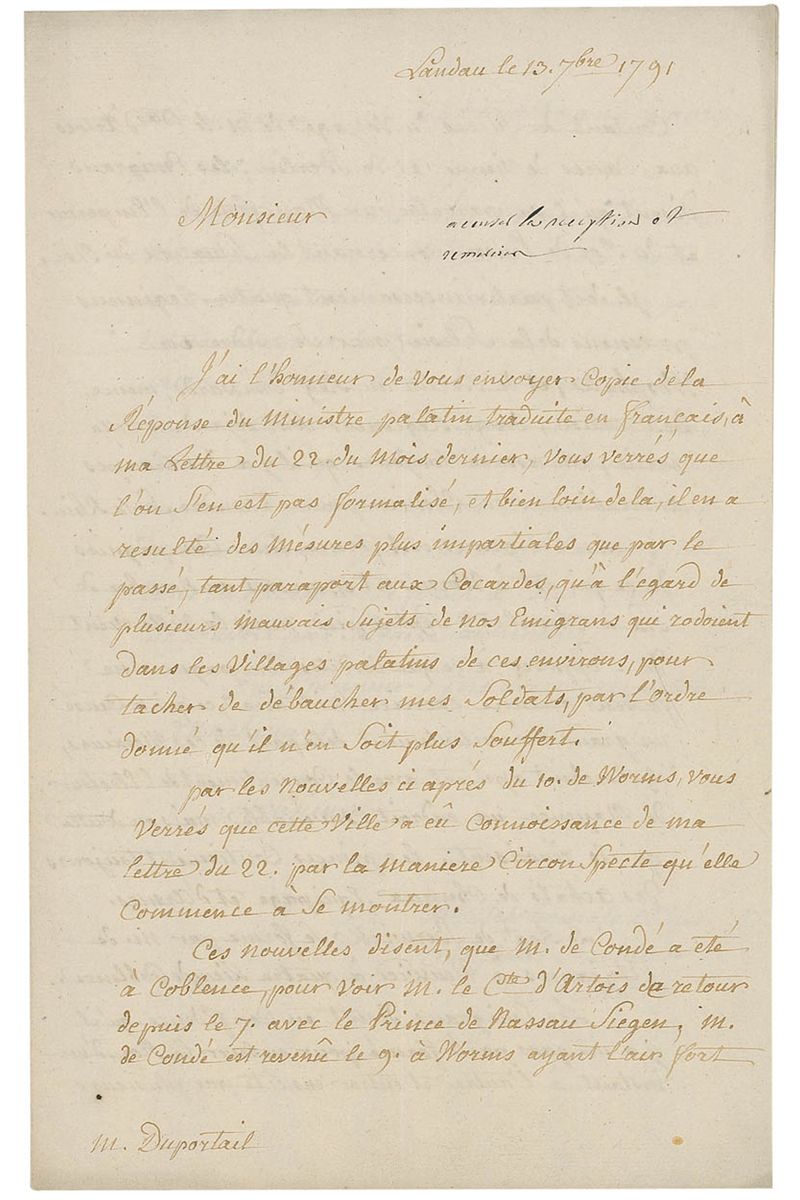 Landau le 13. 7bre 1791
Monsieur
accusé la réception et
remercier
J'ai l'honneur de vous envoyer Copie de la
Réponse du Ministre palatin traduite en français, à
ma Lettre du 22. du Mois dernier, vous verrés que
l'on s'en est pas formalisé, et bien loin de la, il en a
resulté des Mésures plus impartiales que par le
passé, tant paraport aux Cocardes, qu'à l'egard de
plusieurs mauvais Sujets de nos Emigrans qui rodoient
dans les Villages palatins de ces environs, pour
tacher de débaucher mes Soldats, par l'ordre
donné qu'il n'en Soit plus Souffert.
par les Nouvelles ci aprés du 10. de Worms, vous
Verrés que cette Ville a eû Connoissance de ma
lettre du 22. par la maniere Circonspecte qu'elle
Commence à Se montrer.
Ces nouvelles disent, que M. de Condé a été
à Coblence, pour voir M. le Cte d'Artois de retour
depuis le 7. avec le Prince de Nassau Siegen. M.
de Condé est revenû le 9. à Worms ayant l'air fort
M. Duportail